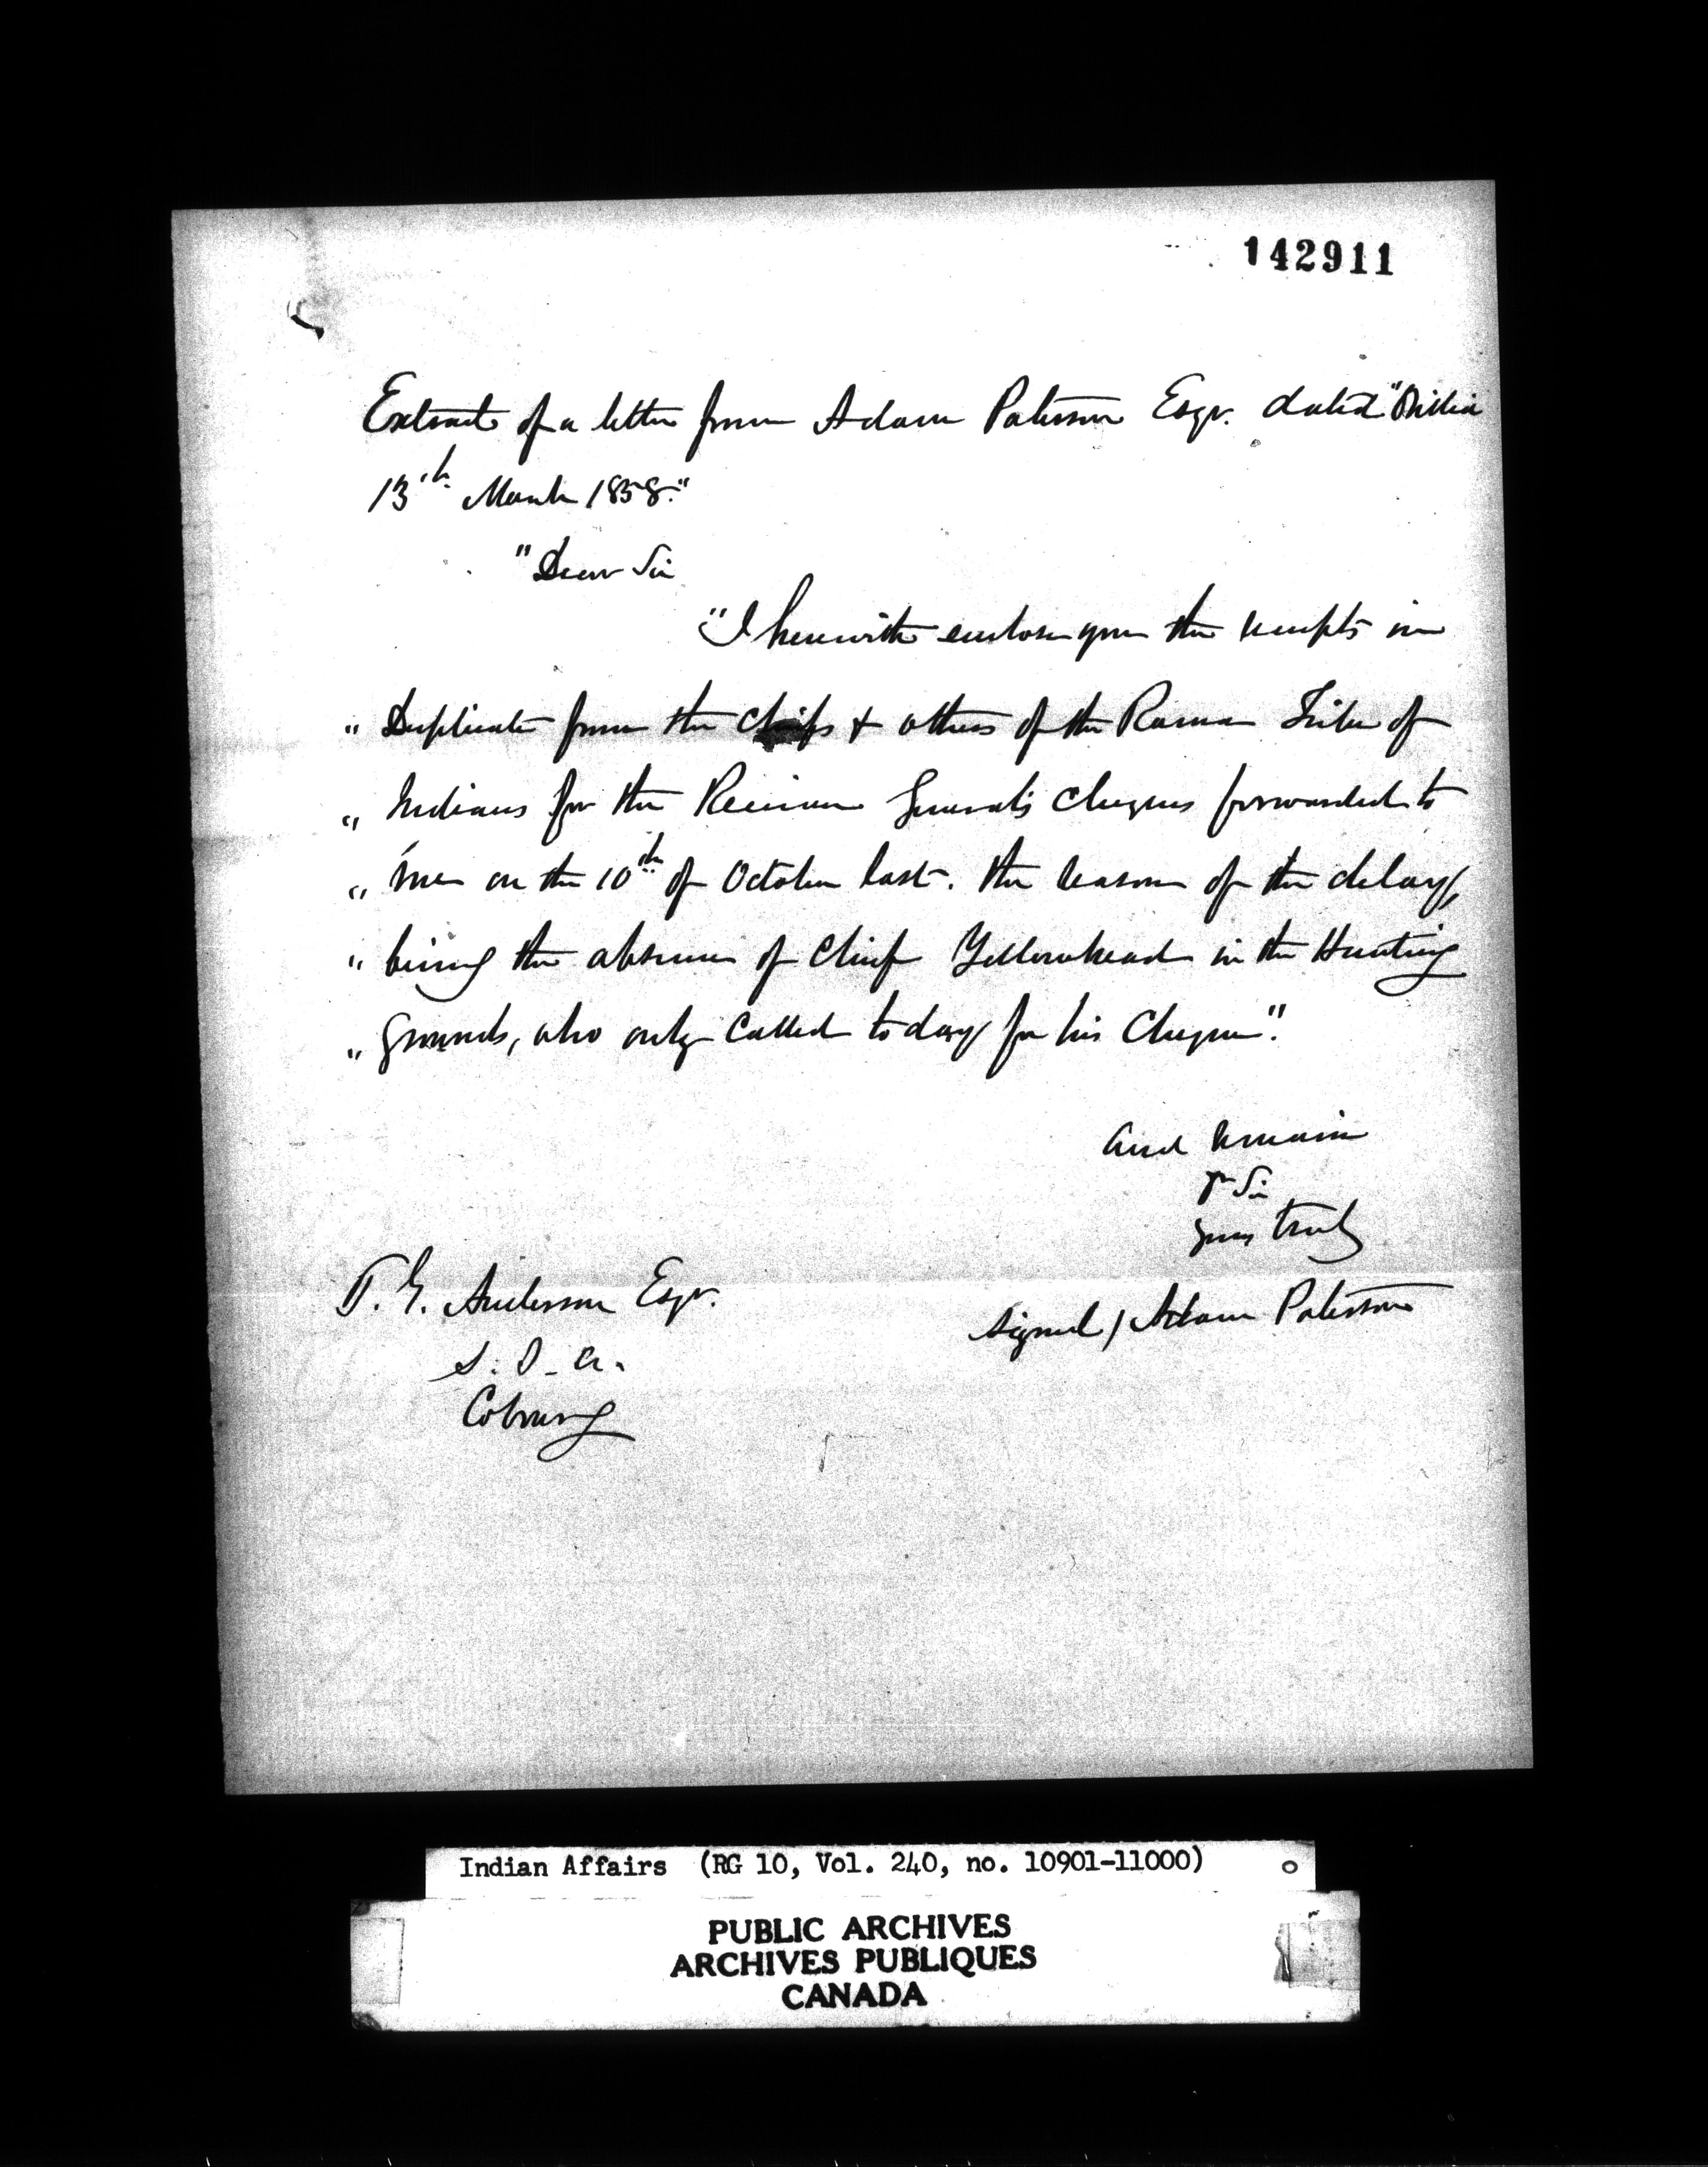 142911
Extract of a letter from Adam Paterson Esqr. dated "Orillia
13th March 1858."
"Dear Sir
"I herewith enclose you the receipts in
" Duplicate from the Chiefs & others of the Rama Tribe of
" Indians for the Receiver General's Cheques forwarded to
" me on the 10th of October last. the reason of the delay,
" being the absence of Chief Yellowhead in the Hunting
" grounds, who only called to day for his Cheque".
and remain
Dr Sir
yours truly
Signed / Adam Paterson
T. G. Anderson Esqr.
S. I. A.
Cobourg
Indian Affairs (RG 10, Vol. 240, no. 10901-11000)
PUBLIC ARCHIVES
ARCHIVES PUBLIQUES
CANADA